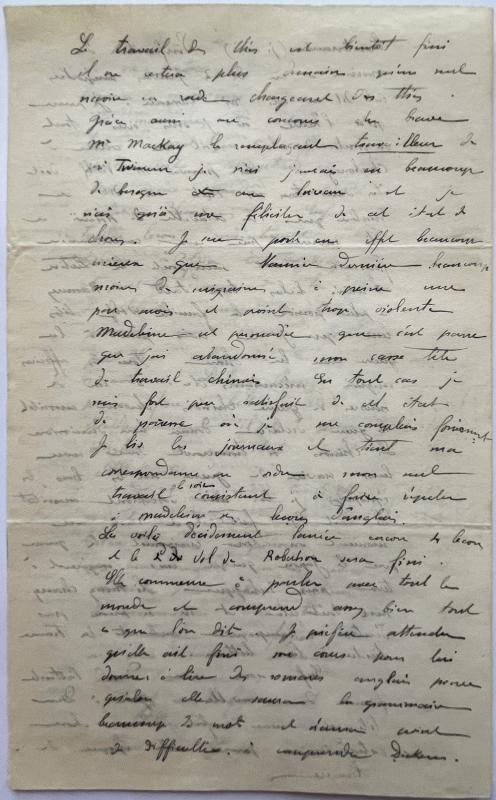 Le travail des thés est bientôt fini
il ne restera plus
navire en rade chargeant des thés.
Grâce aussi au concours du brave
Mr Mackay le remplaçant travailleur de
je n'ai jamais eu beaucoup
de besogne au bureau et je
n'ai qu'à me féliciter de cet état de
choses. Je me porte en effet beaucoup
mieux que l'année dernière beaucoup
moins de migraines à peine une
par mois et point trop violente
Madeleine est persuadée que c'est parce
que j'ai abandonné mon casse tête
de travail chinois En tout cas je
suis fort peu satisfait de cet état
de paresse où je me complais forcément
Je lis les journaux et tient ma
correspondance en ordre mon seul
travail le soir consistant à faire répéter
à Madeleine ses leçons d'anglais.
La voilà décidément lancée encore leçons
et le 2d Vol de Robertson sera fini.
Elle commence à parler avec tout le
monde et comprend assez bien tout
ce que l'on dit Je préfère attendre
qu'elle ait fini son cours pour lui
donner à lire des romans anglais parce
qu'alors elle saura la grammaire
beaucoup de mots et d'aura
de difficultés à comprendre Dickens.